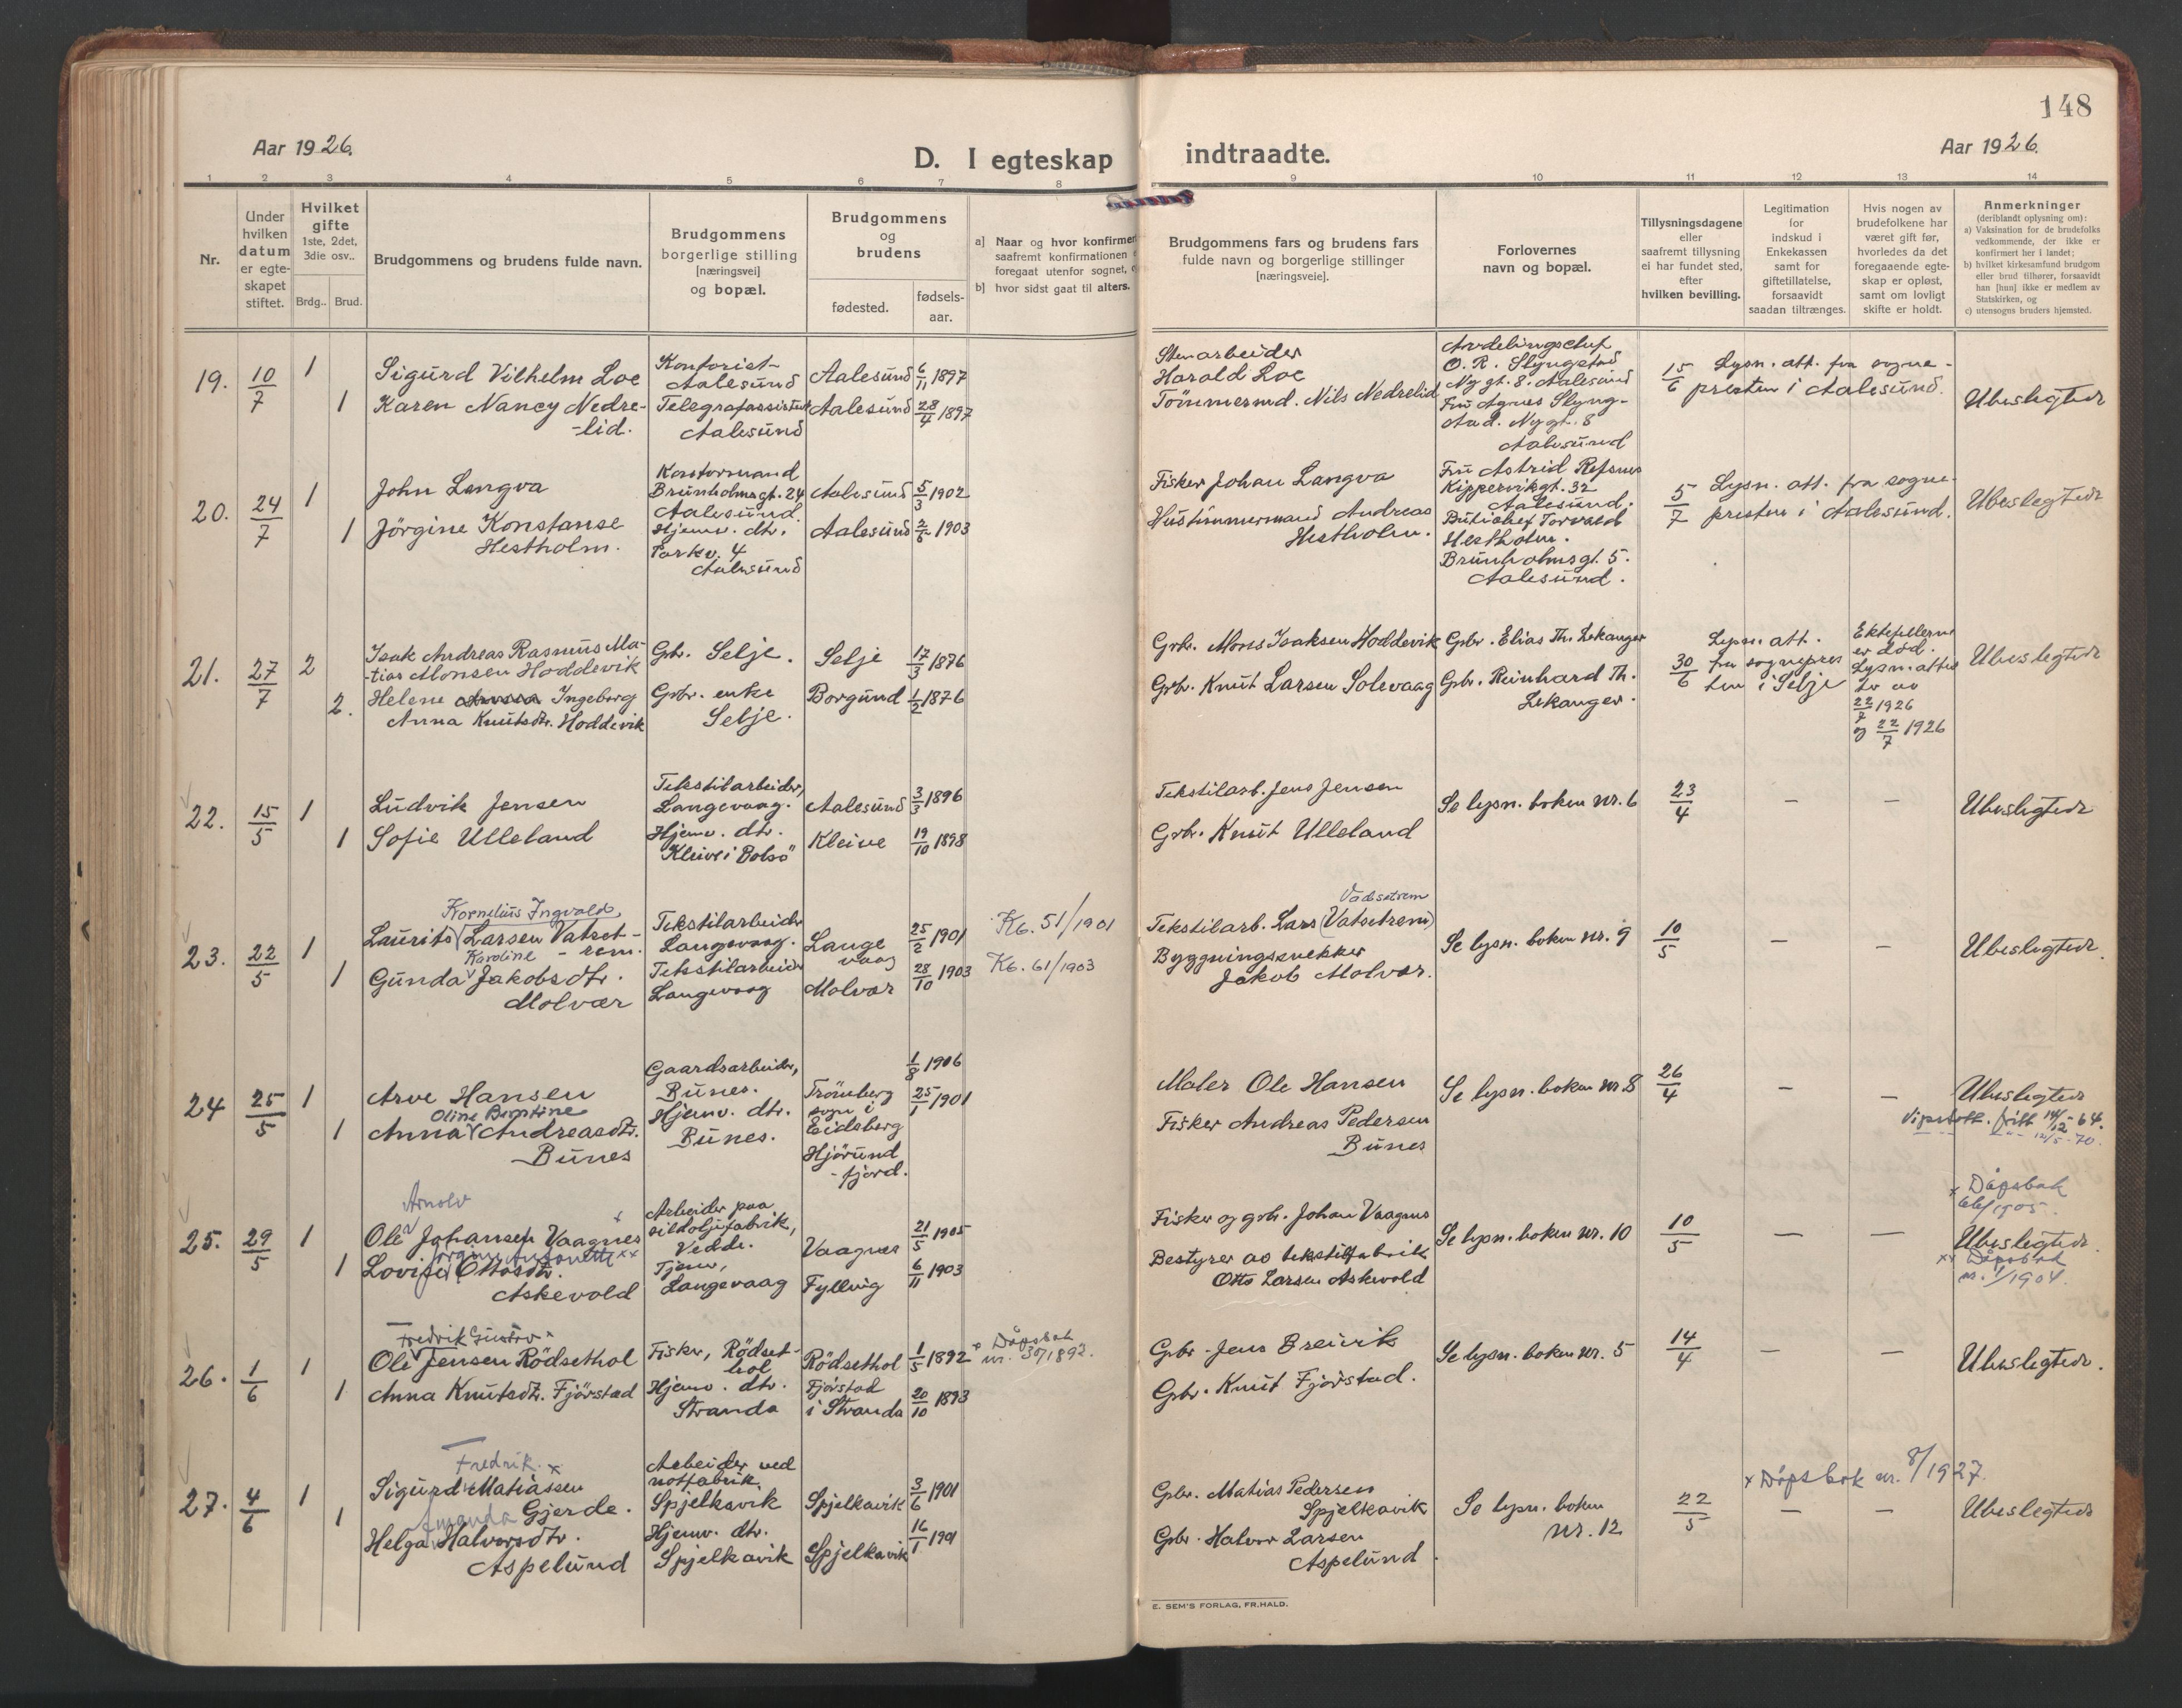 148
Aar 1926.
D. I egteskap
indtraadte.
Aar 1926.
1 2 3 4 5 6 7 8 9 10 11 12 13 14
Nr.
Under
hvilken
datum
er egte-
skapet
stiftet.
Hvilket
gifte
1ste, 2det,
3die osv..
Brdg.. Brud.
Brudgommens og brudens fulde navn.
Brudgommens
borgerlige stilling
[næringsvei]
og bopæl.
Brudgommens
og
brudens
fødested.
fødsels-
aar.
a] Naar og hvor konfirmer
saafremt konfirmationen
foregaat utenfor sognet,
b] hvor sidst gaat til alters.
Brudgommens fars og brudens fars
fulde navn og borgerlige stillinger
[næringsveie].
Forlovernes
navn og bopæl.
Tillysningsdagene
eller
saafremt tillysning
ei har fundet sted,
efter
hvilken bevilling.
Legitimation
for
indskud i
Enkekassen
samt for
giftetillatelse,
forsaavidt
saadan tiltrænges.
Hvis nogen av
brudefolkene har
været gift før,
hvorledes da det
foregaaende egte-
skap er opløst,
samt om lovligt
skifte er holdt.
Anmerkninger
(deriblandt oplysning om):
a) Vaksination for de brudefolks
vedkommende, der ikke er
konfirmert her i landet;
b) hvilket kirkesamfund brudgom
eller brud tilhører, forsaavidt
han [hun] ikke er medlem av
Statskirken, og
c) utensogns bruders hjemsted.
19. 10/7 1
1
Sigurd Vilhelm Loe
Karen Nancy Nedre-
-lid.
Kontorist
Aalesund
Telegrafassistent
Aalesund
Aalesund 6/11 1897
Aalesund 28/4 1897
Stenarbeider
Harald Loe
Tömmermd. Nils Nedrelid
Avdelingschef
O. R. Slyngstad
Nygt. 8. Aalesund
Fru Agnes Slyng-
stad. Nygt. 8
Aalesund
15/6 Lysn. att. fra sogne-
presten i Aalesund.
Ubeslegtede
20. 24/7 1
1
John Langva
Jörgine Konstanse
Hestholm.
Kontormand
Brunholmsgt. 24
Aalesund.
Hjemv. dtr.
Parkv. 4
Aalesund
Aalesund 5/3 1902
Aalesund 2/6 1903
Fisker Johan Langva
Hustömmermand Andreas
Hestholm.
Fru Astrid Refsnes
Kippervikgt. 32
Aalesund.
Butikchef Torvald
Hestholm.
Brunholmsgt. 5.
Aalesund.
5/7 Lysn. att. fra sogne-
presten i Aalesund.
Ubeslegtede
21. 27/7 2
2.
Isak Andreas Rasmus Ma-
-tias Monsen Hoddevik
Helene Anna Ingeborg
Anna Knutsdtr. Hoddevik
Gbr. Selje.
Gbr. enke
Selje.
Selje 17/3 1876
Borgund 1/2 1876
Grbr. Mons Isaksen Hoddevik
Grbr. Knut Larsen Solevaag
Gbr. Elias Th. Lekanger
Gbr. Reinhard Th.
Lekanger.
30/6
Lysn. att.
fra sognepres
ten i Selje
Ektefellerne
er död.
Lysn. attes
ter av
22/7 1926
og 22/7 1926
Ubeslegtede
22. 15/5 1
1
Ludvik Jensen
Sofie Ulleland
Tekstilarbeider,
Langevaag.
Hjemv. dtr.
Kleive i Bolsö
Aalesund 3/3 1896
Kleive 19/10 1898
Tekstilarb. Jens Jensen
Gbr. Knut Ulleland
Se lysn. boken nr. 6
23/4
– –
Ubeslegtede
23. 22/5 1
1
Kornelius Ingvald
Laurits Larsen Vatset-
- rem.
Karoline
Gunda Jakobsdtr.
Molvær
Tekstilarbeider
Langevaag.
Tekstilarbeider
Langevaag
Lange
vaag
25/2 1901
Molvær 28/10 1903
Kb. 51/1901
Kb. 61/1903
Vadsetrem
Tekstilarb. Lars (Vatsetrem)
Byggningssnekker
Jakob Molvær.
Se lysn. boken nr. 9
10/5
– –
Ubeslegtede.
24 25/5 1
1
Arve Hansen
Oline Birgitine
Anna Andreasdtr.
Bunes
Gaardsarbeider,
Bunes.
Hjemv. dtr.
Bunes.
1/8 1906
Trömberg
sogn i
Eidsberg
25/1 1901
Hjörund
-fjord.
Maler Ole Hansen
Fisker Andreas Pedersen
Bunes
Se lysn. boken nr 8
26/4
– –
Ubeslegtede
Vigselatt. fritt 14/12-64.
-"- 12/5-70.
25. 29/5 1
1
Arnolv
Ole Johansen Vaagnes x
Jörgine Antonette xx
Lovise Ottosdtr.
Askevold
Arbeider paa
sildoljefabrik,
Vedde.
Tjener,
Langevaag
Vaagnes 21/5 1905
Fylling 6/11 1903
Fisker og gbr. Johan Vaagnes
Bestyrer av tekstilfabrik
Otto Larsen Askevold
Se lysn. boken nr. 10
10/5
– –
x Dåpsbok
66/1905.
Ubeslegtede.
xx Dåpsbok
nr. 1/1904.
26. 1/6 1
1
Fredrik Gustav x
Ole Jensen Rödsethol
Anna Knutsdtr. Fjörstad
Fisker, Rödset-
hol
Hjemv. dtr.
Stranda
Rödsethol 1/5 1892
Fjörstad
i Stranda 20/10 1893
x Dåpsbok
nr. 30/1892.
Gbr. Jens Breivik
Gbr. Knut Fjörstad.
Se lysn. boken nr. 5
14/4
– –
Ubeslegtede.
27. 4/6 1
1
Fredrik x
Sigurd Matiassen
Gjerde.
Amanda
Helga Halvorsdtr.
Aspelund
Arbeider ved
notfabrik,
Spjelkavik
Hjemv. dtr.
Spjelkavik
Spjelkavik 3/6 1901
Spjelkavik 16/1 1901
Gbr. Matias Pedersen
Spjelkavik
Gbr. Halvor Larsen
Aspelund.
Se lysn. boken
nr. 12
22/5
x Dåpsbok nr. 8/1927.
– –
Ubeslegtede
E. SEM'S FORLAG, FR.HALD.